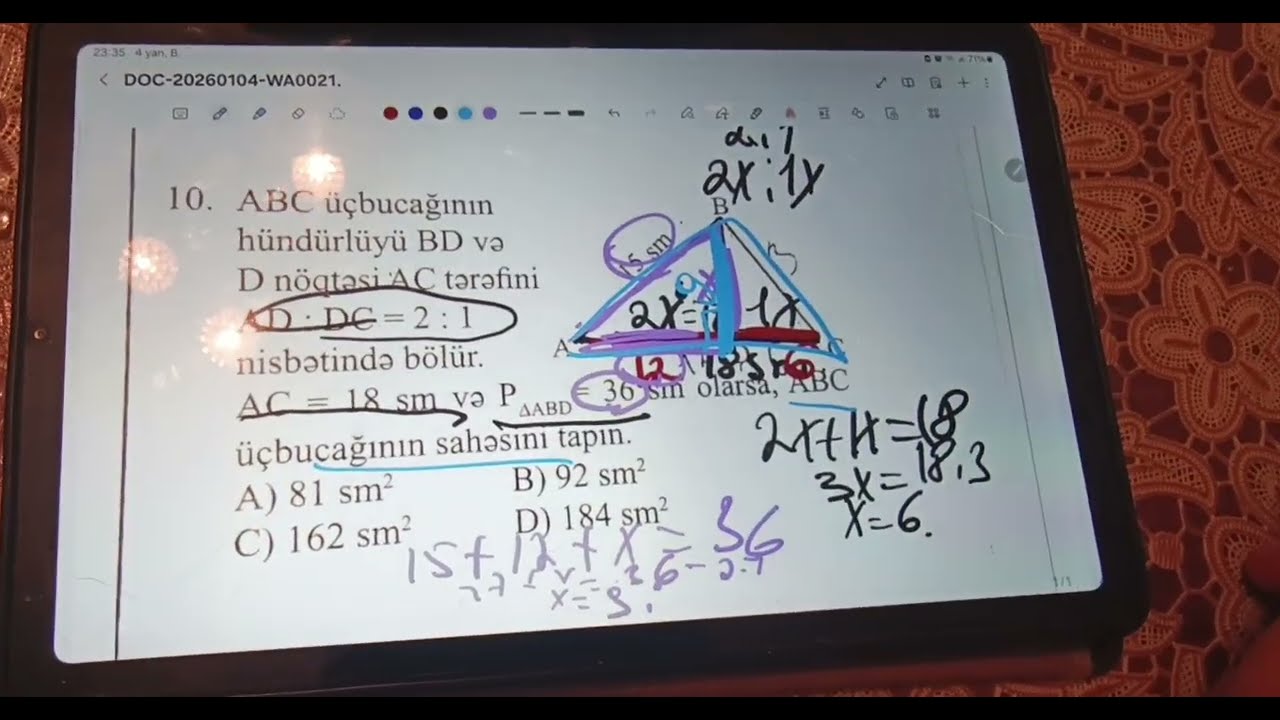 23:35 4 yan, B.
71%
DOC-20260104-WA0021.
10. ABC üçbucağının
hündürlüyü BD və
D nöqtəsi AC tərəfini
AD : DC = 2 : 1
nisbətində bölür.
AC = 18 sm və P△ABD = 36 sm olarsa, ABC
üçbucağının sahəsini tapın.
A) 81 sm²
B) 92 sm²
C) 162 sm²
D) 184 sm²
2x : 1x
B
15 sm
2x =
1x
A
C
12
18
6
2x+1x=18
3x=18.3
x=6.
15+12+x=36
x=
1/1